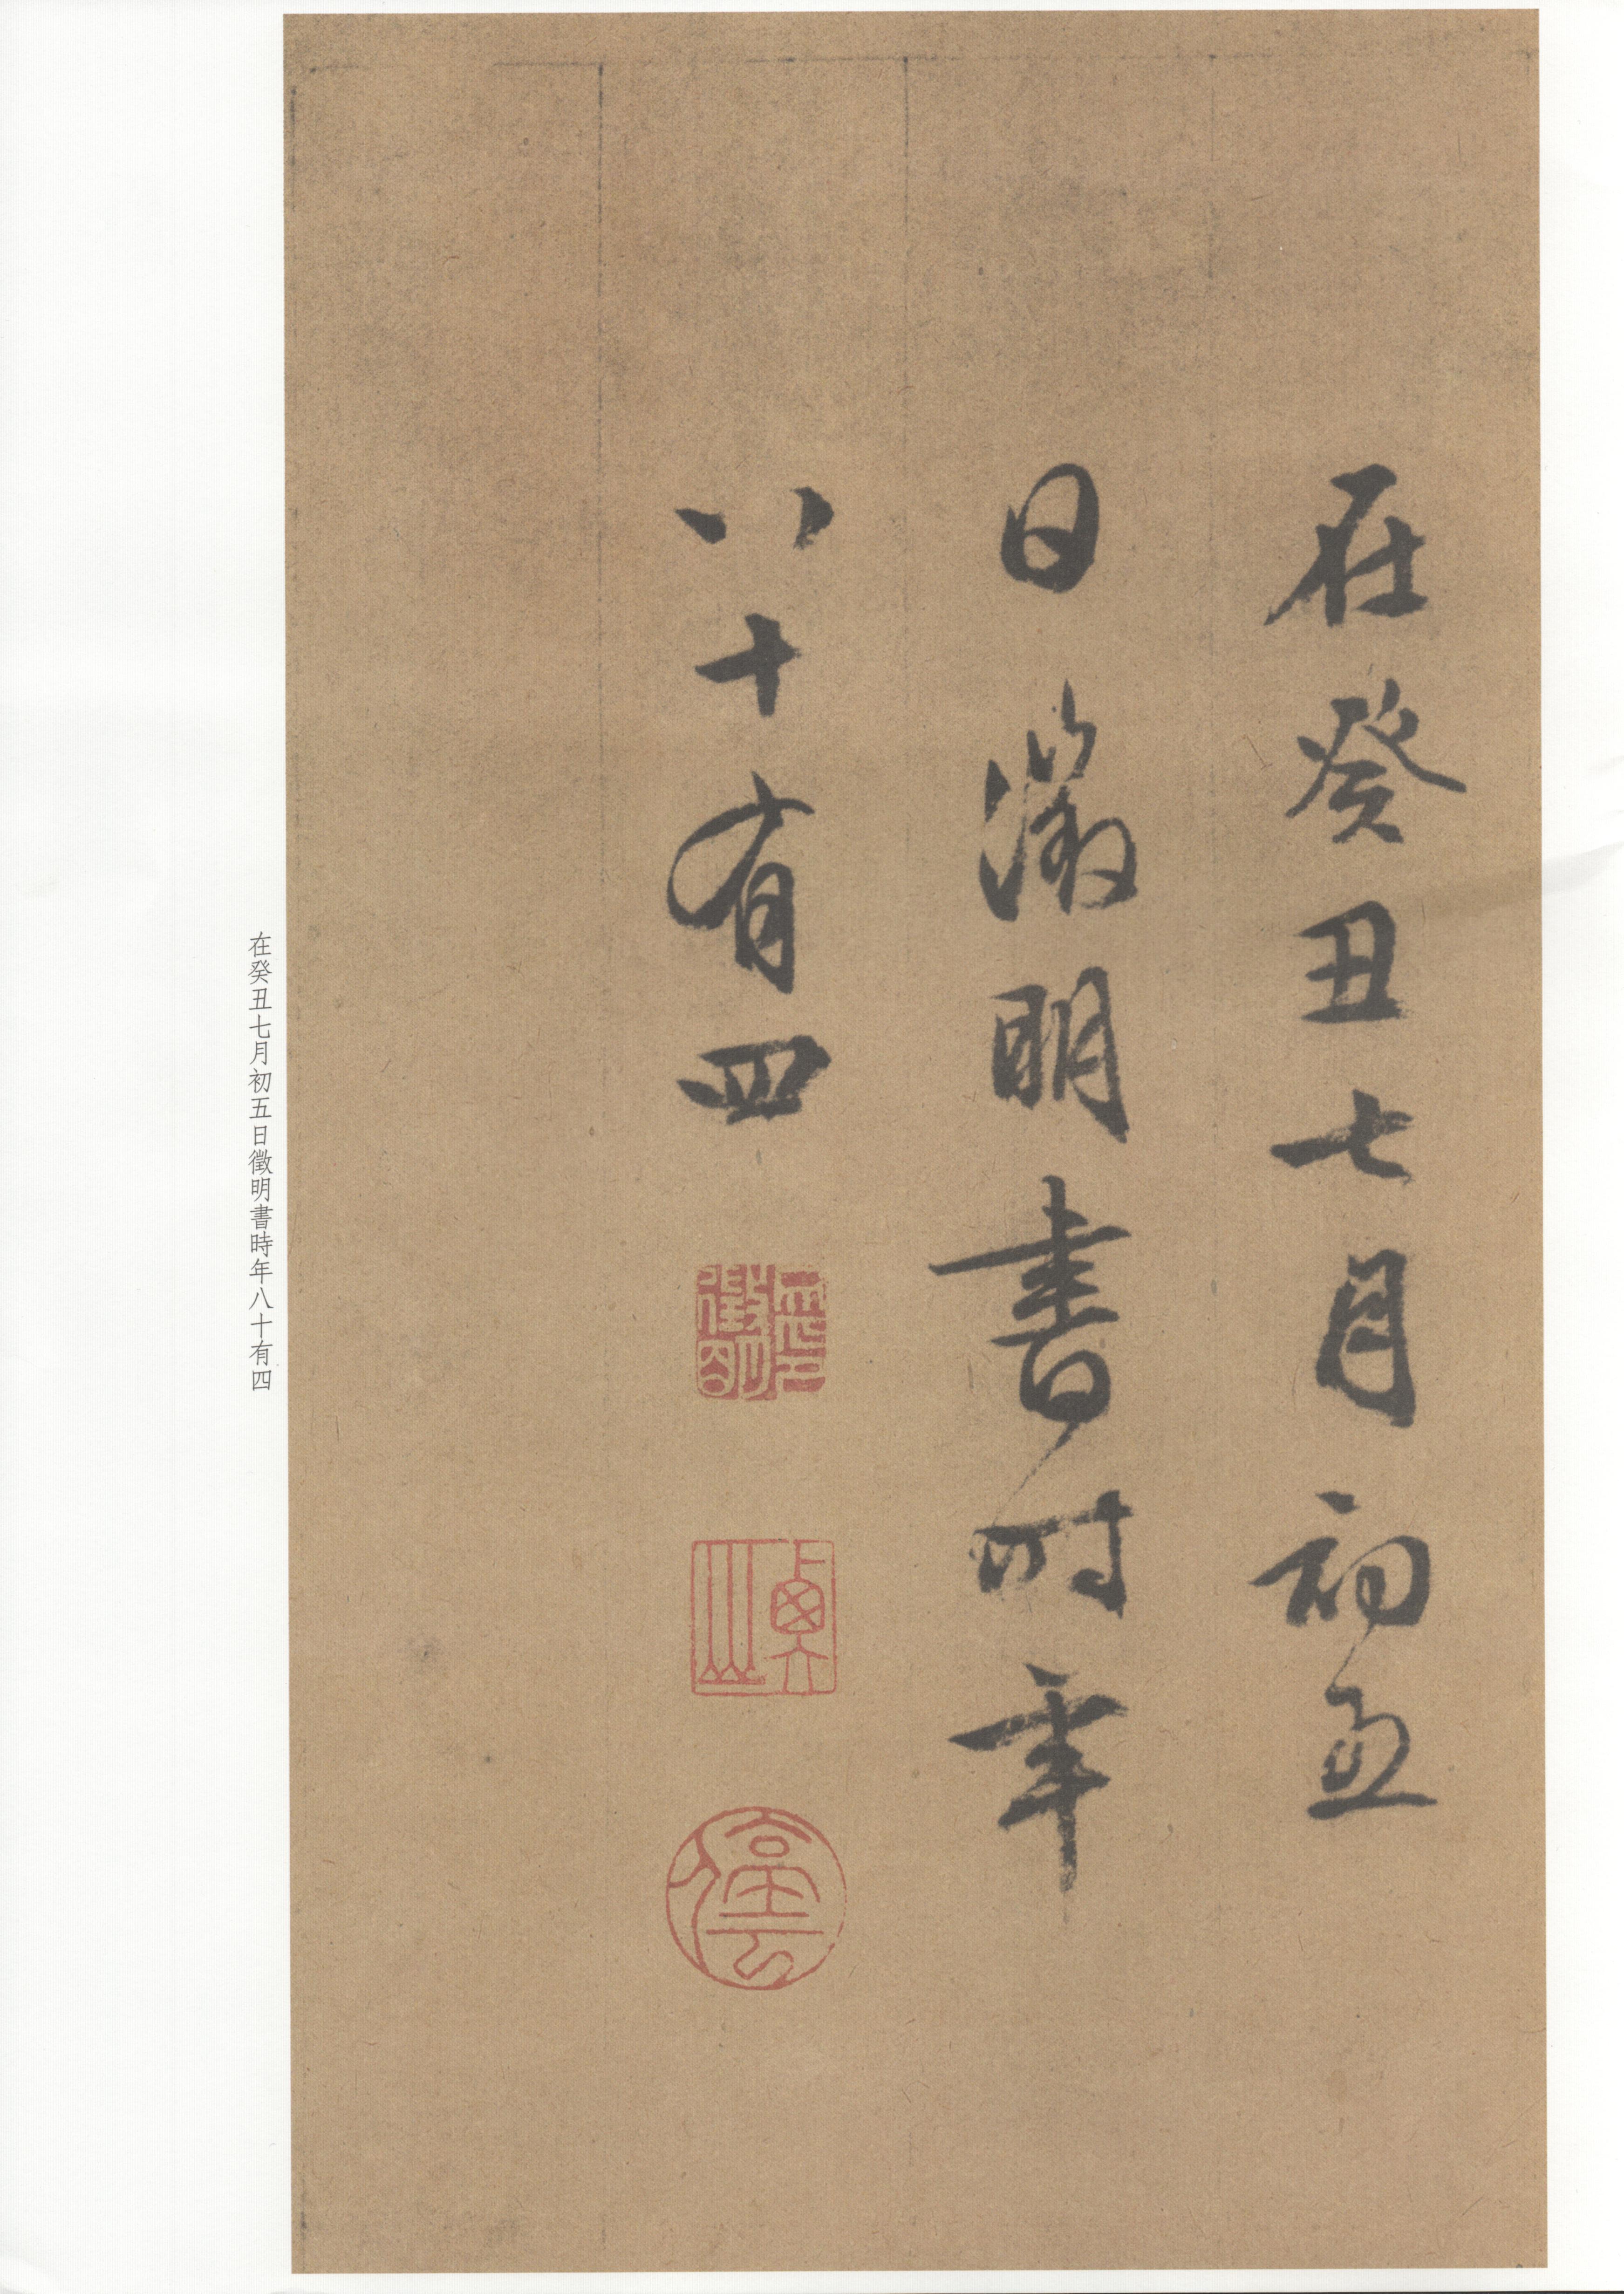 在癸丑七月初五
日徵明書時年
八十有四
徵明
停雲
在癸丑七月初五日徵明書時年八十有四